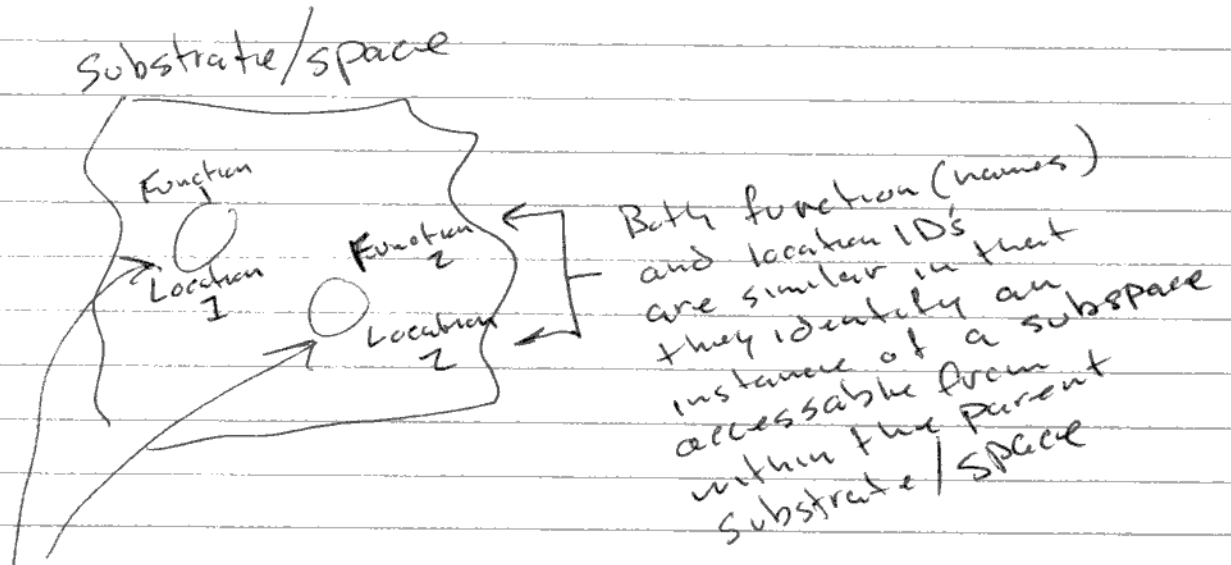 Substrate/space
Function
1
Location
1
Function
2
Location
2
Both function (names)
and location ID's
are similar in that
they identify an
instance of a subspace
accessable from
within the parent
substrate/space